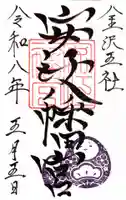 金沢五社
安江八幡宮
令和八年 五月五日